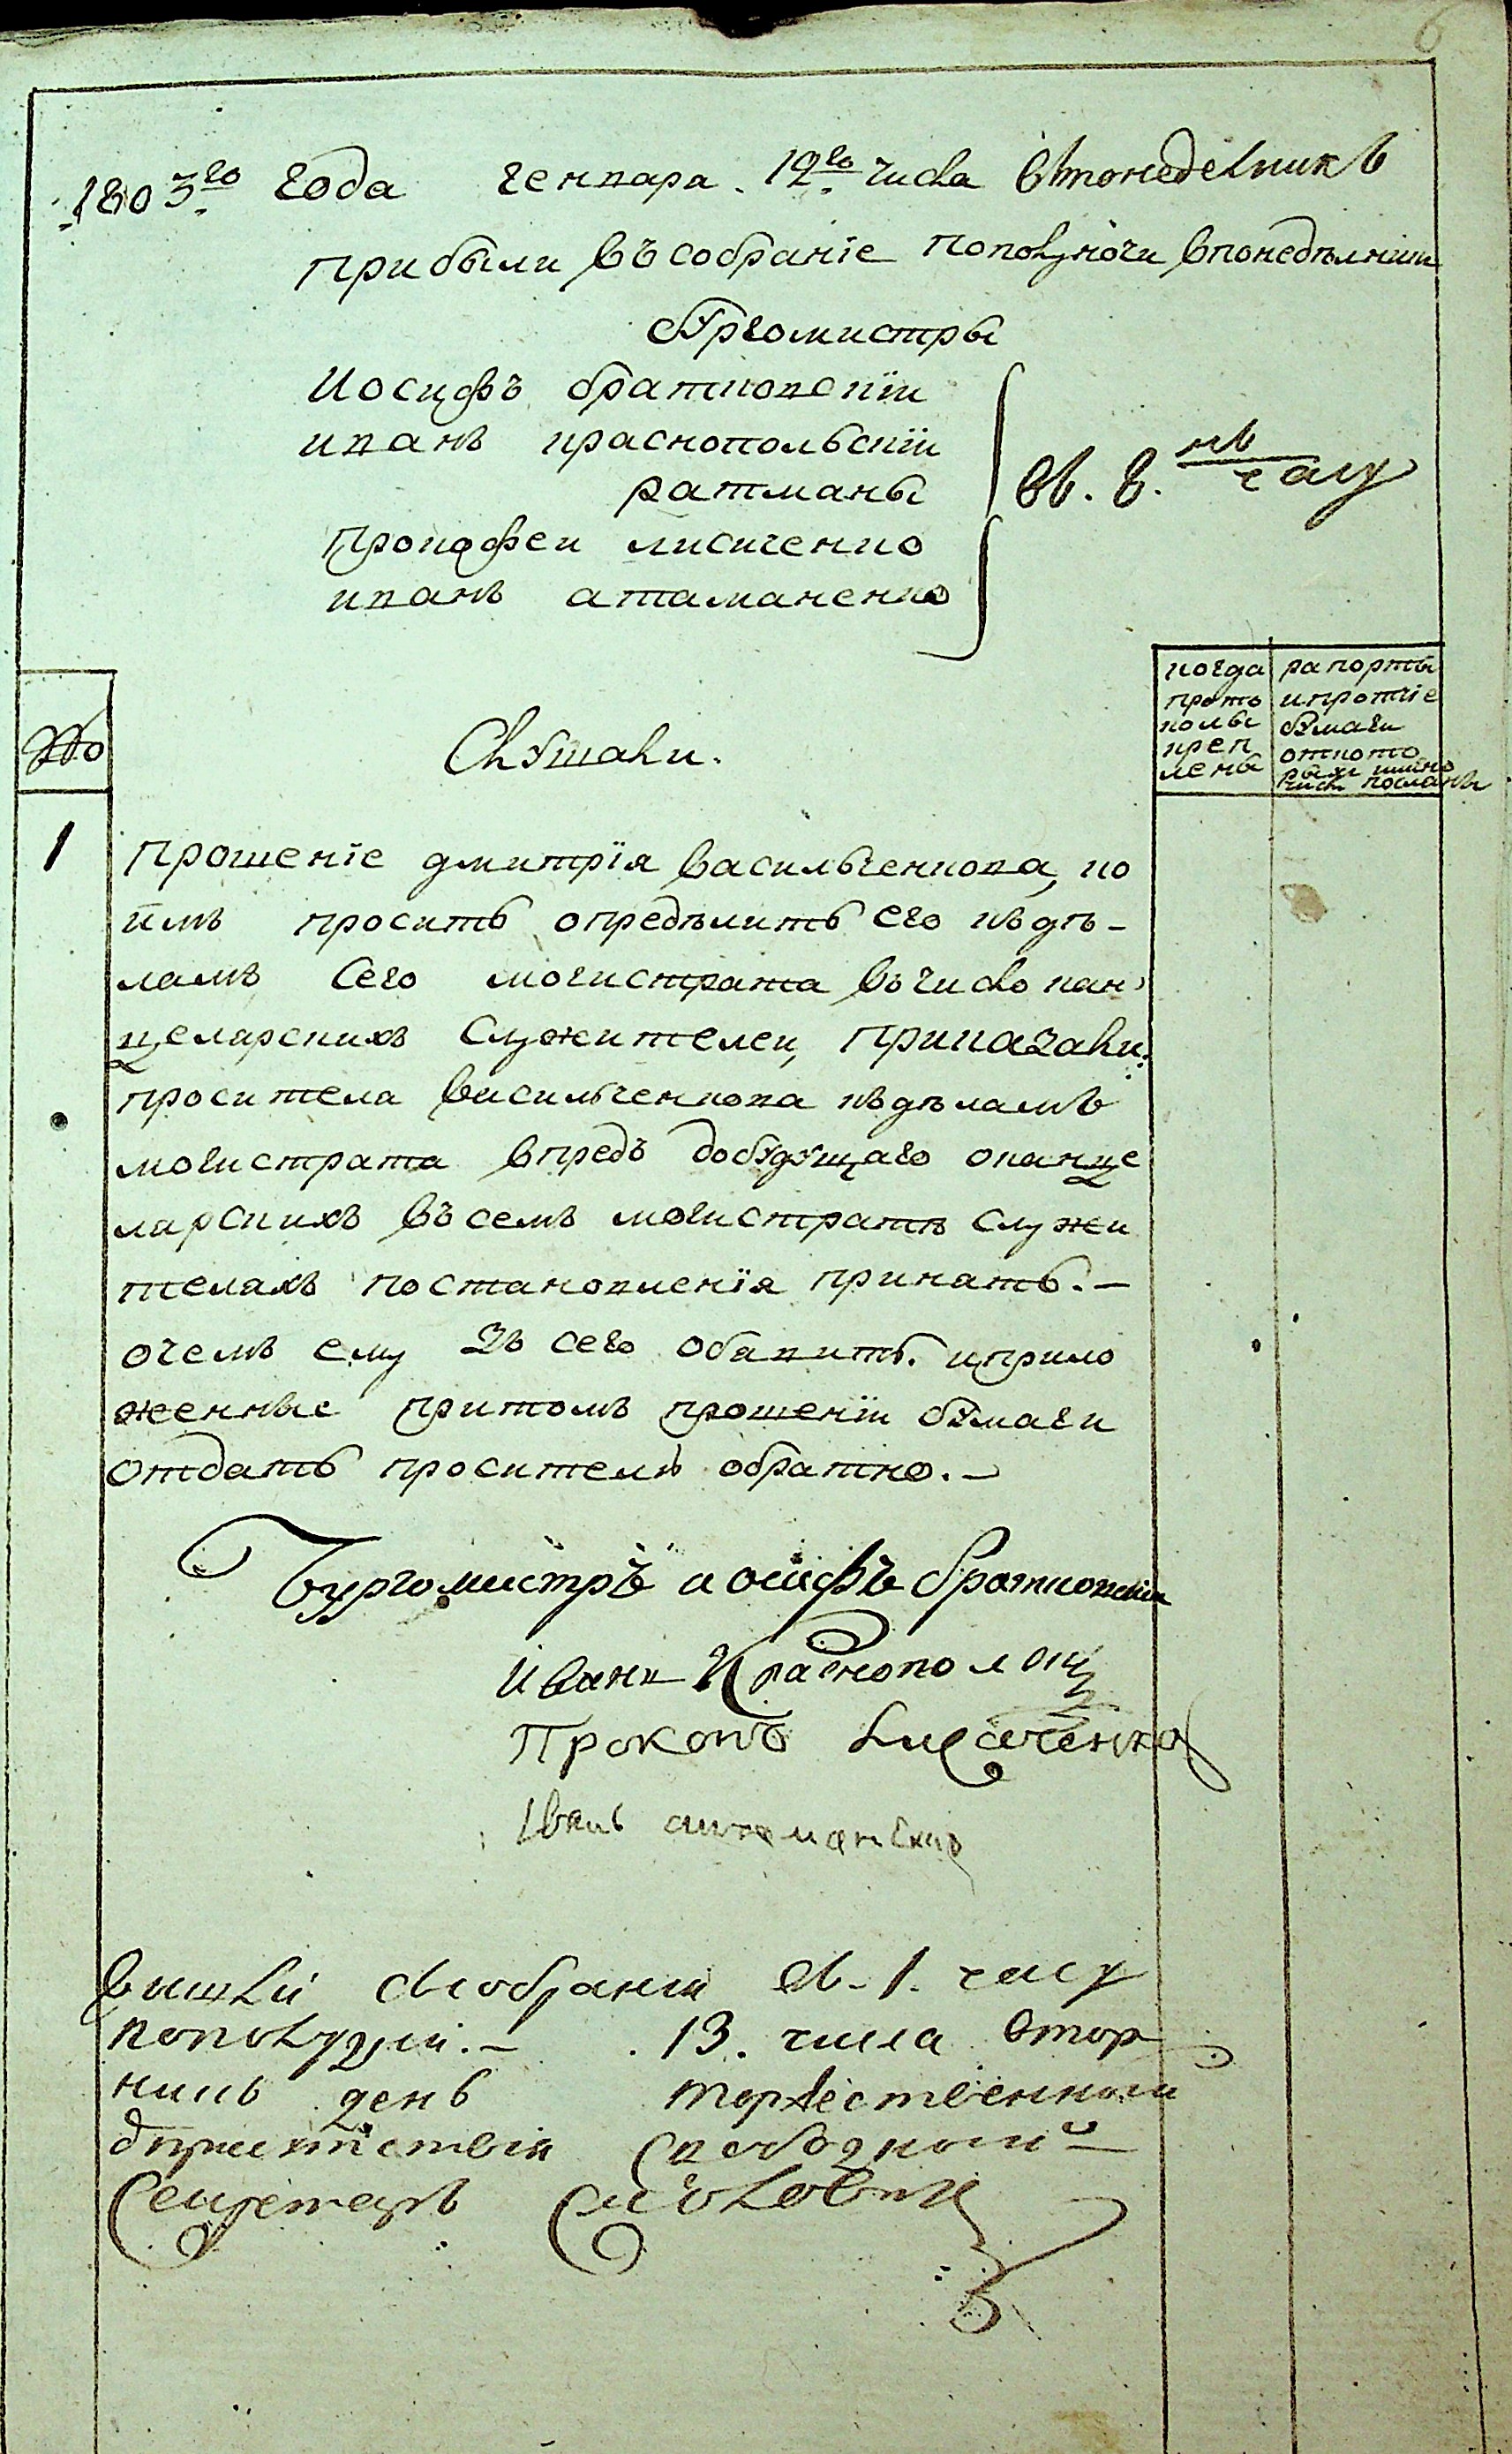 6
1803го года генвара. 12го числа втонеделникъ
прибыли въ собраніе пополуночи впонедѣлник
бургомистры
Иосифъ братковскій
иванъ краснопольскій
ратманы
Прокофеи лисиченко
иванъ атаманенко
въ. 8. мъ часу
№
когда прото колы креп лены
рапорты и протчіе бумаги
Слушали.
1
Прошеніе дмитрія васильченкова, ко
імъ просить опредѣлить его къ дѣ-
ламъ сего могистрата въ число кан
целарскихъ служителеи, Приказали:
просителя васильченкова къ дѣламъ
могистрата впредь до будущаго о канце
ларскихъ въ семъ могистратѣ служи
телахъ постановленія принать. —
о чемъ ему зъ сего обавить. и прило
женные при томъ прошеніи бумаги
отдать просителю обратно. —
Бургомистръ иосифъ братковскій
Иванъ Краснополскі
Прокопъ Лисаченко
Іванъ атаманенко
вишли собранія въ 1. часу
пополудни. — 13. числа втор
никъ день торжественной
присутствія свободной
Секретарь